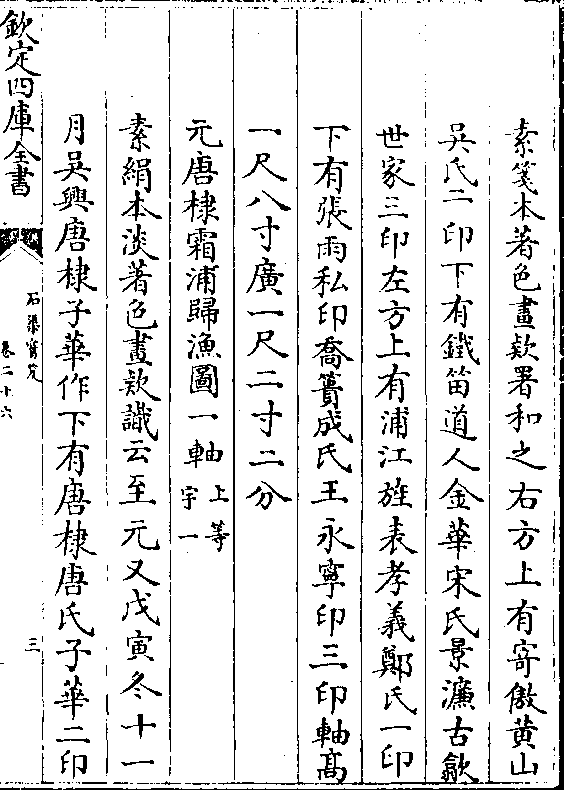 素箋本著色畫款署和之右方上有寄傲黄山
吳氏二印下有鐵笛道人金華宋氏景濂古歙
世家三印左方上有浦江旌表孝義鄭氏一印
下有張雨私印喬簣成氏王永寧印三印軸高
一尺八寸廣一尺二寸二分
元唐棣霜浦歸漁圖一軸 上等
宇一
素絹本淡著色畫款識云至元又戊寅冬十一
月吳興唐棣子華作下有唐棣唐氏子華二印
欽定四庫全書
石渠寳笈
卷二十六
三